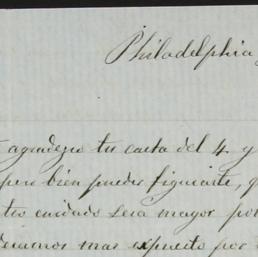 Philadelphia
agradezco tu carta del 4. y
pero bien puedes figurarte, q
cuidado sera mayor por
mas expuesto por